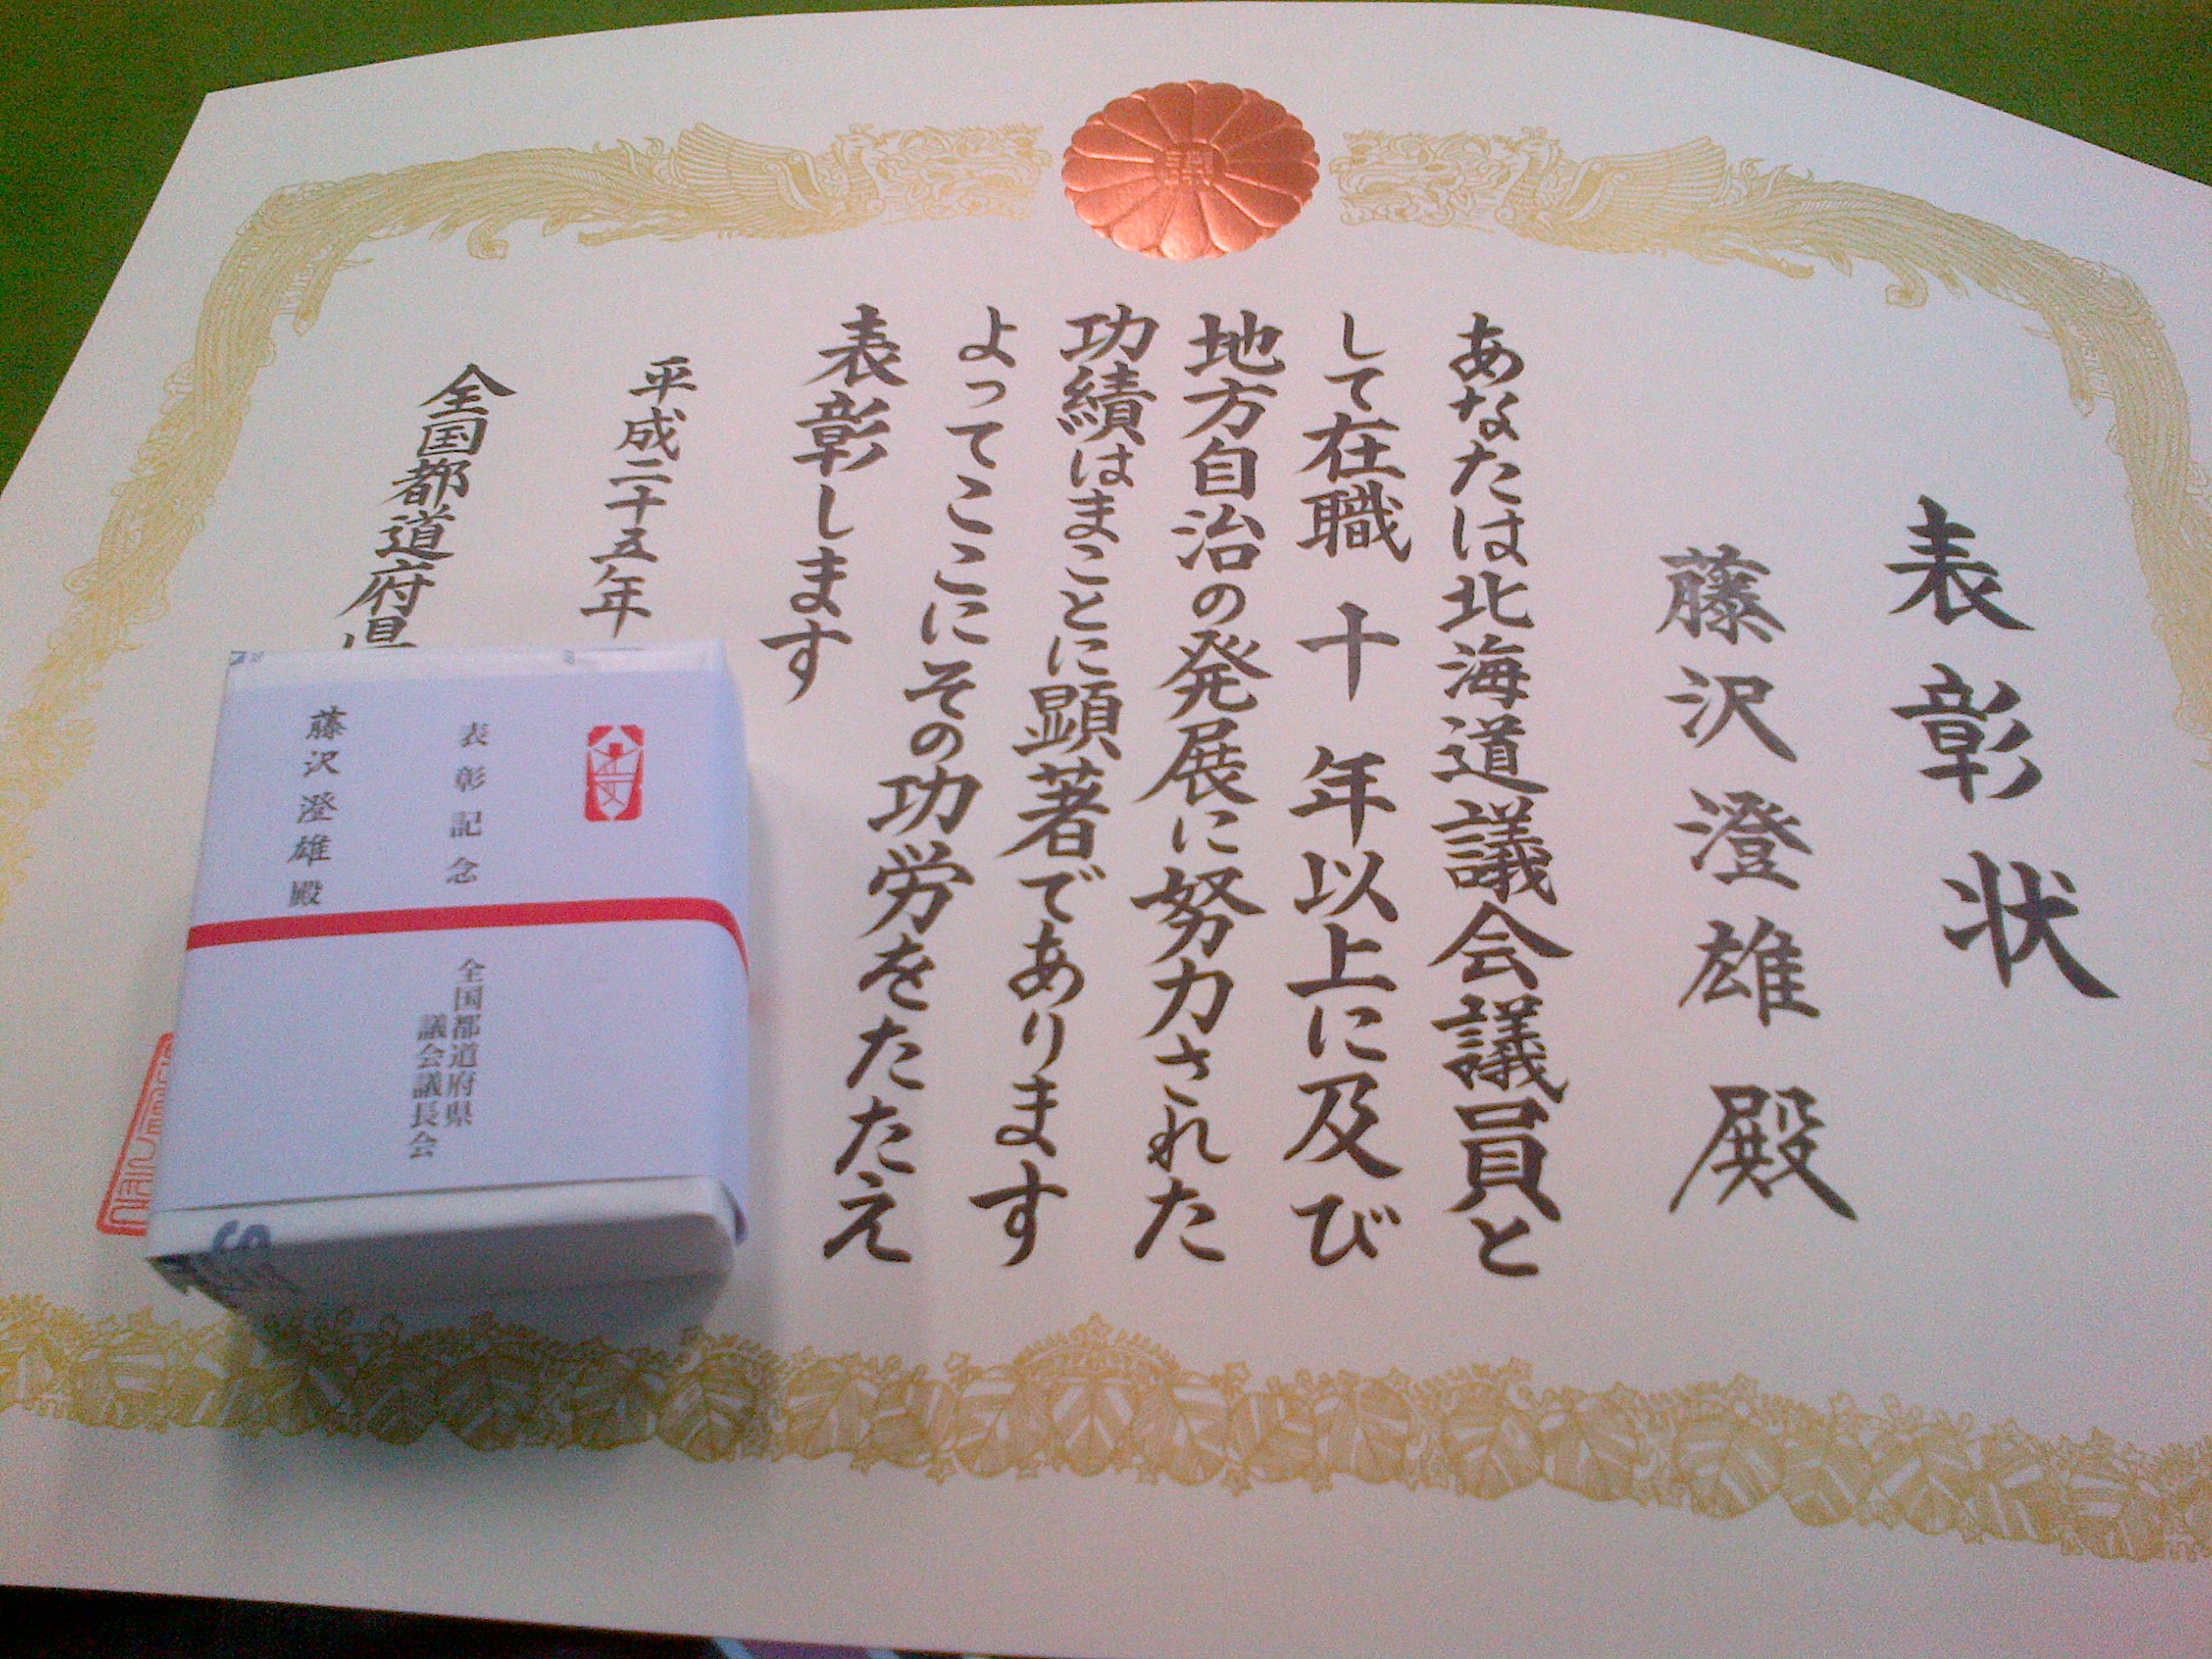 表彰状
藤沢澄雄殿
あなたは北海道議会議員と
して在職十年以上に及び
地方自治の発展に努力された
功績はまことに顕著であります
よってここにその功労をたたえ
表彰します
平成二十五年
全国都道府県
議
表彰記念
藤沢澄雄殿
全国都道府県
議会議長会